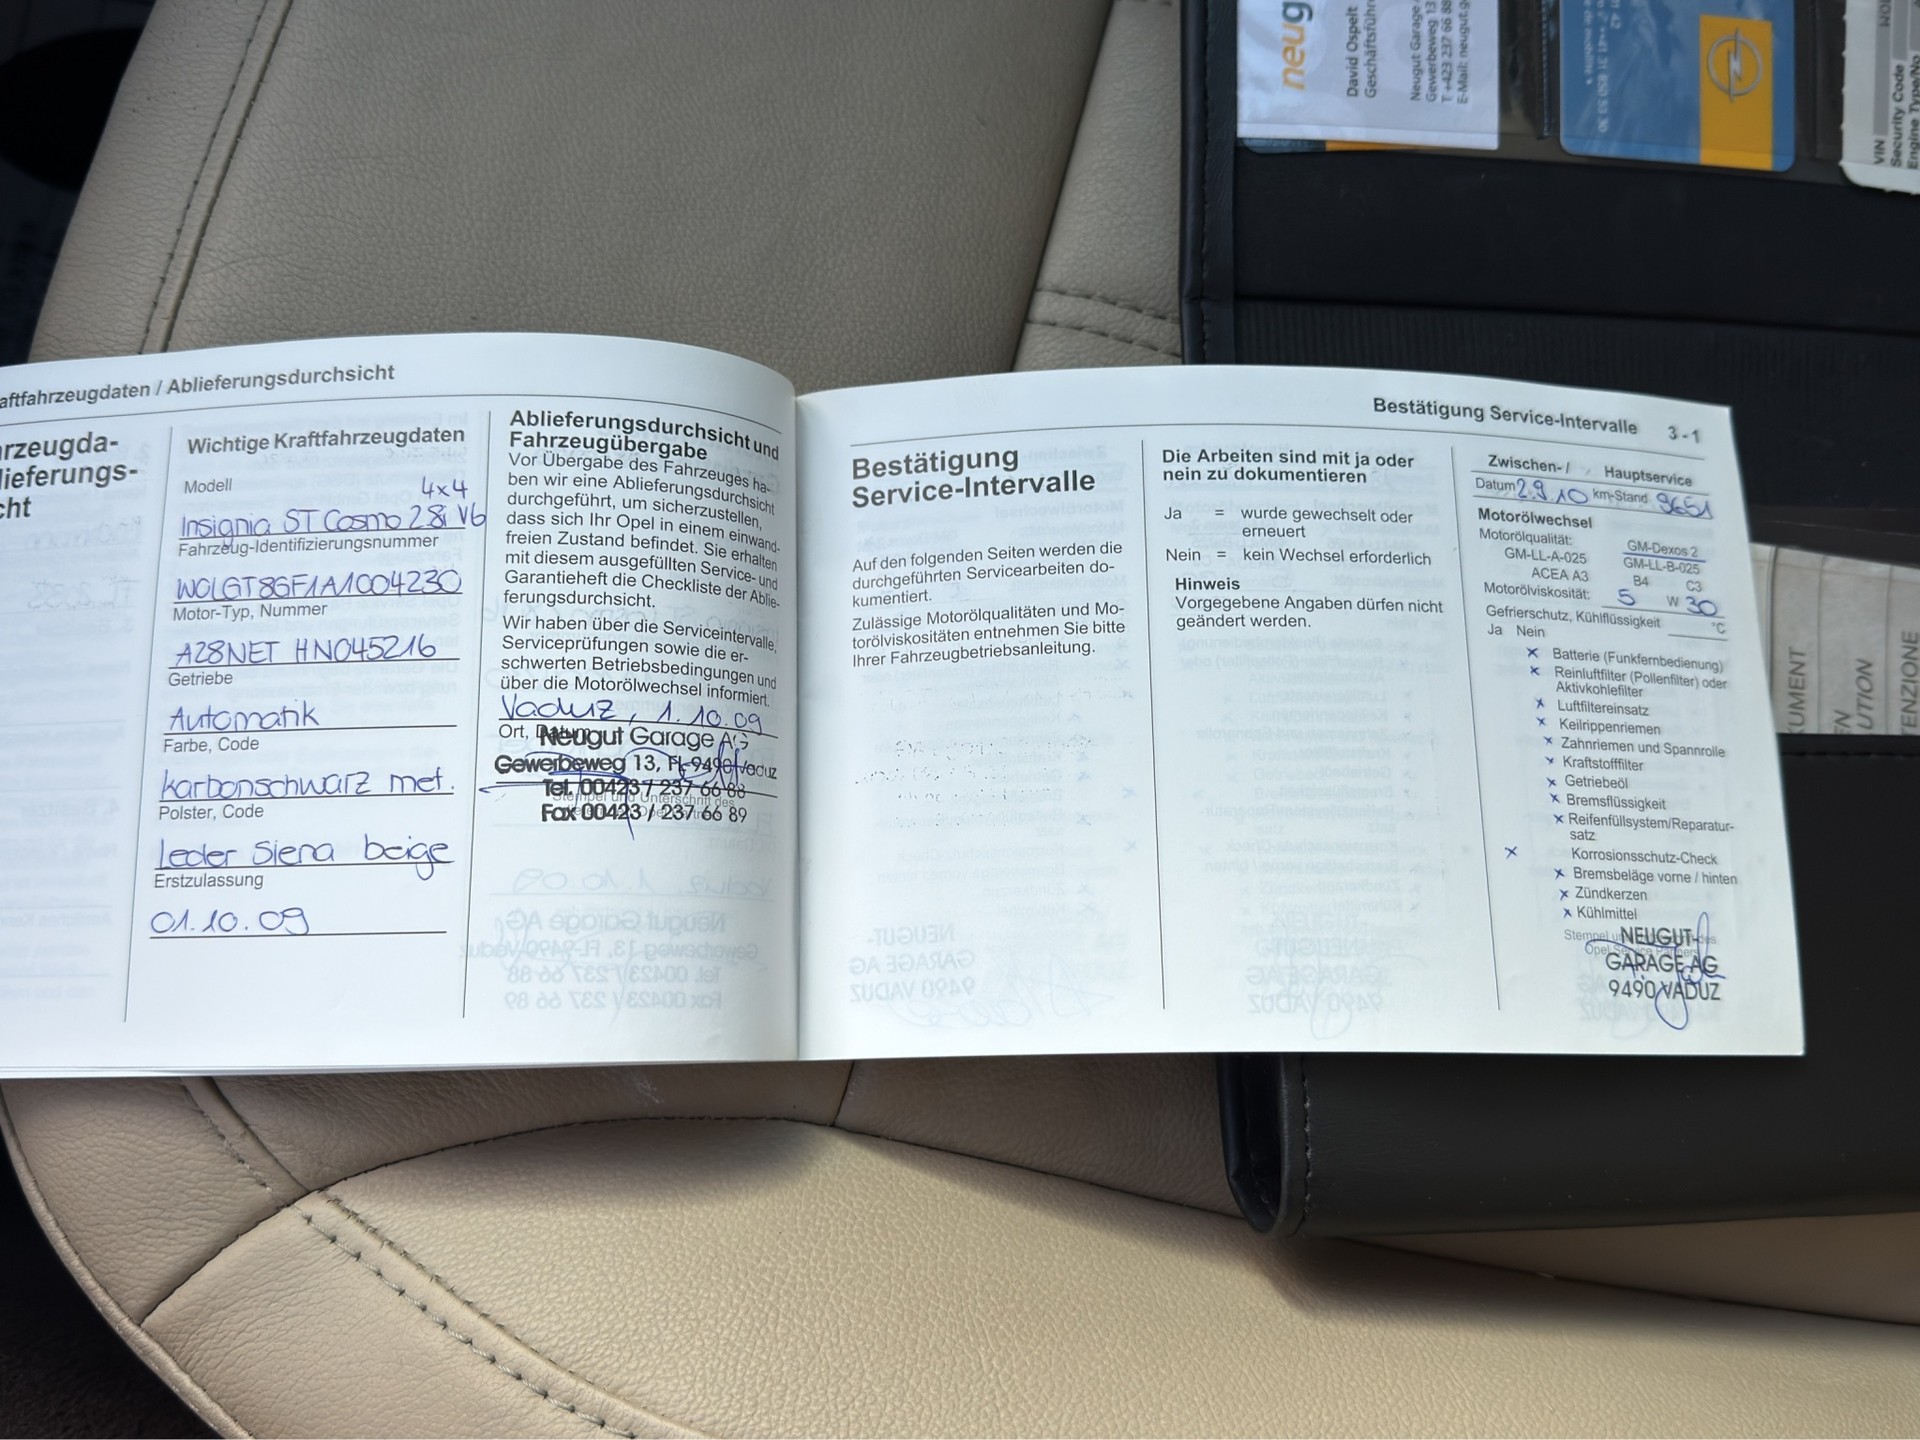 aftfahrzeugdaten / Ablieferungsdurchsicht
rzeugda-
lieferungs-
cht
Wichtige Kraftfahrzeugdaten
Modell
4x4
Insignia ST Cosmo 2.8i V6
Fahrzeug-Identifizierungsnummer
W0LGT8GF1A1004230
Motor-Typ, Nummer
A28NET HN045216
Getriebe
Automatik
Farbe, Code
Karbonschwarz met.
Polster, Code
Leder Siena beige
Erstzulassung
01.10.09
Ablieferungsdurchsicht und
Fahrzeugübergabe
Vor Übergabe des Fahrzeuges ha-
ben wir eine Ablieferungsdurchsicht
durchgeführt, um sicherzustellen,
dass sich Ihr Opel in einem einwand-
freien Zustand befindet. Sie erhalten
mit diesem ausgefüllten Service- und
Garantieheft die Checkliste der Ablie-
ferungsdurchsicht.
Wir haben über die Serviceintervalle,
Serviceprüfungen sowie die er-
schwerten Betriebsbedingungen und
über die Motorölwechsel informiert.
Vaduz, 1.10.09
Ort,
Neugut Garage AG
Gewerbeweg 13, FL-9490 Vaduz
Tel. 00423 / 237 66 88
Stempel und Unterschrift des
Fax 00423 / 237 66 89
Bestätigung Service-Intervalle 3-1
Bestätigung
Service-Intervalle
Auf den folgenden Seiten werden die
durchgeführten Servicearbeiten do-
kumentiert.
Zulässige Motorölqualitäten und Mo-
torölviskositäten entnehmen Sie bitte
Ihrer Fahrzeugbetriebsanleitung.
Die Arbeiten sind mit ja oder
nein zu dokumentieren
Ja = wurde gewechselt oder
erneuert
Nein = kein Wechsel erforderlich
Hinweis
Vorgegebene Angaben dürfen nicht
geändert werden.
Zwischen- / Hauptservice
Datum 2.9.10 km-Stand 9651
Motorölwechsel
Motorölqualität: GM-Dexos 2
GM-LL-A-025 GM-LL-B-025
ACEA A3 B4 C3
Motorölviskosität: 5 W 30
Gefrierschutz, Kühlflüssigkeit °C
Ja Nein
x Batterie (Funkfernbedienung)
x Reinluftfilter (Pollenfilter) oder
Aktivkohlefilter
x Luftfiltereinsatz
x Keilrippenriemen
x Zahnriemen und Spannrolle
x Kraftstofffilter
x Getriebeöl
x Bremsflüssigkeit
x Reifenfüllsystem/Reparatur-
satz
x Korrosionsschutz-Check
x Bremsbeläge vorne / hinten
x Zündkerzen
x Kühlmittel
NEUGUT-
GARAGE AG
9490 VADUZ
neug
David Ospelt
Geschäftsführ
Neugut Garage
Gewerbeweg 13
T +423 237 66 88
E-Mail: neugut.g
VIN
Security Code
Engine Type/No
KUMENT
EN
UTION
TENZIONE